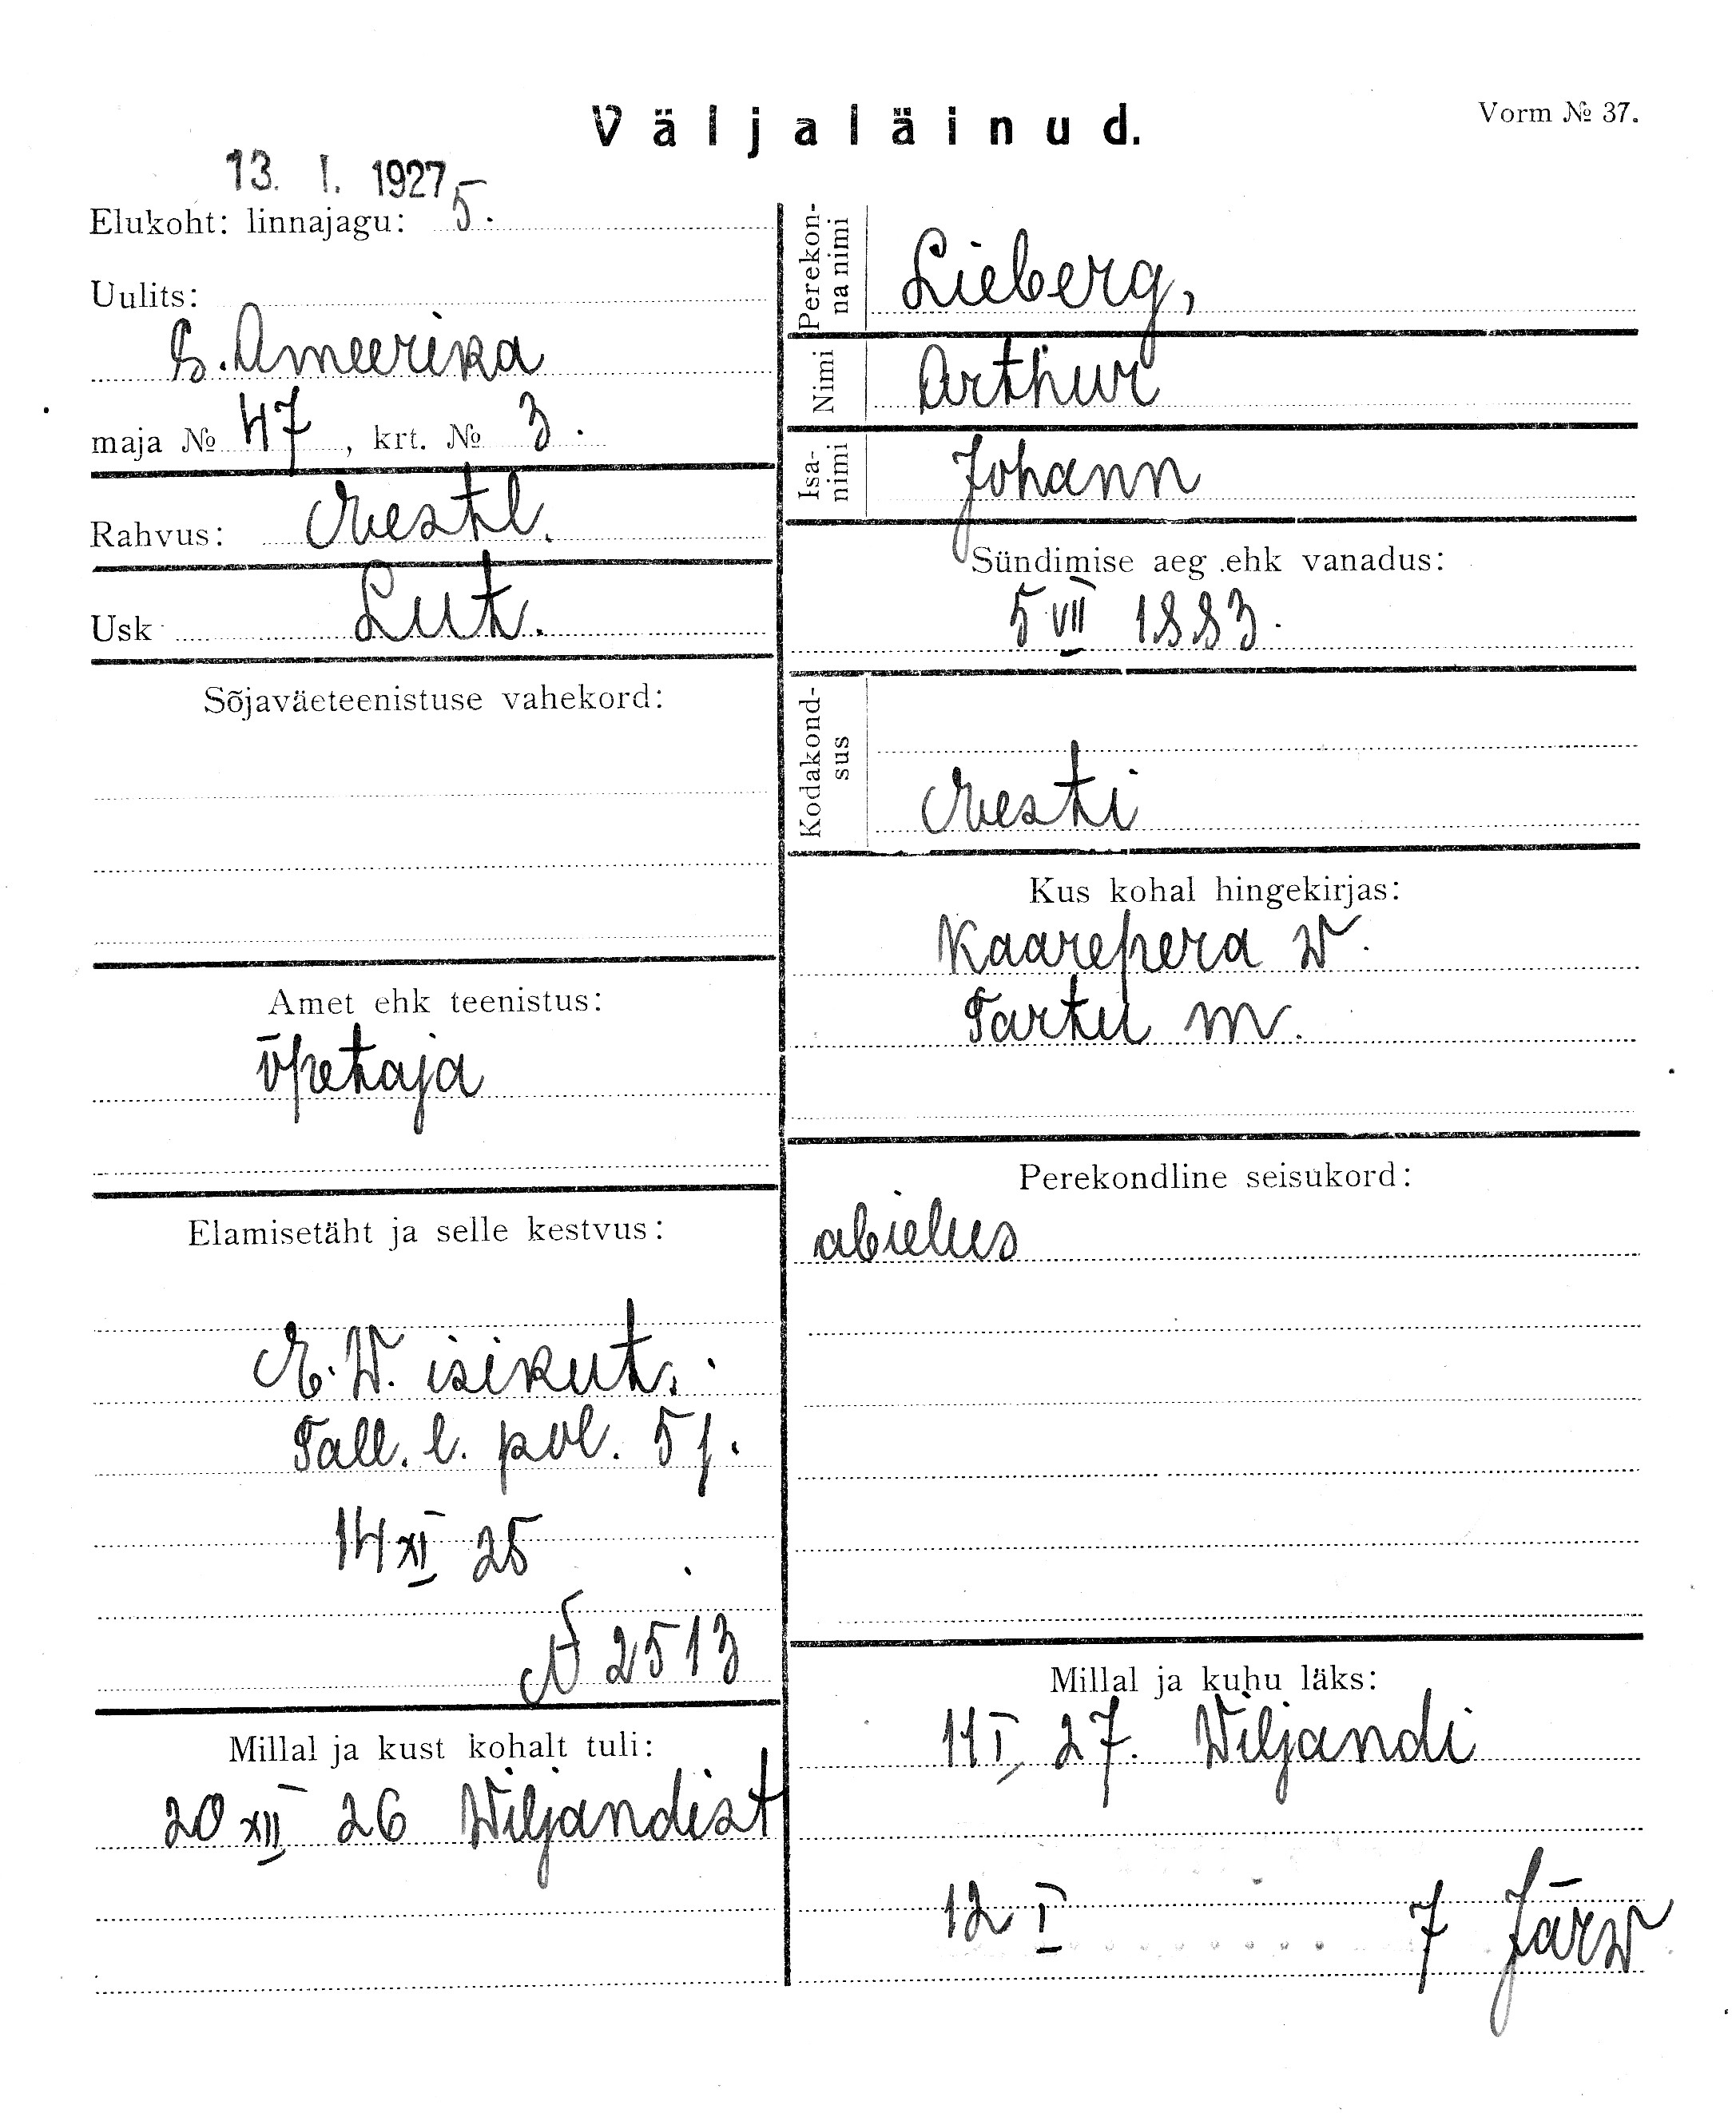 Väljaläinud.
Vorm № 37.
13. I. 1927
Elukoht: linnajagu: 5.
Uulits:
S. Ameerika
maja № 47, krt. № 3.
Rahvus: Eestl.
Usk Lut.
Sõjaväeteenistuse vahekord:
Amet ehk teenistus:
õpetaja
Elamisetäht ja selle kestvus:
E.W. isikut.
Tall. l. pol. 5 j.
14 XI 25
N 2513
Millal ja kust kohalt tuli:
20 XII 26 Wiljandist
Perekon-
na nimi
Lieberg,
Nimi
Arthur
Isa-
nimi
Johann
Sündimise aeg ehk vanadus:
5 VII 1883.
Kodakond-
sus
Eesti
Kus kohal hingekirjas:
Kaarepera w.
Tartu m.
Perekondline seisukord:
abielus
Millal ja kuhu läks:
11 I 27. Wiljandi
12 I 7 Järw